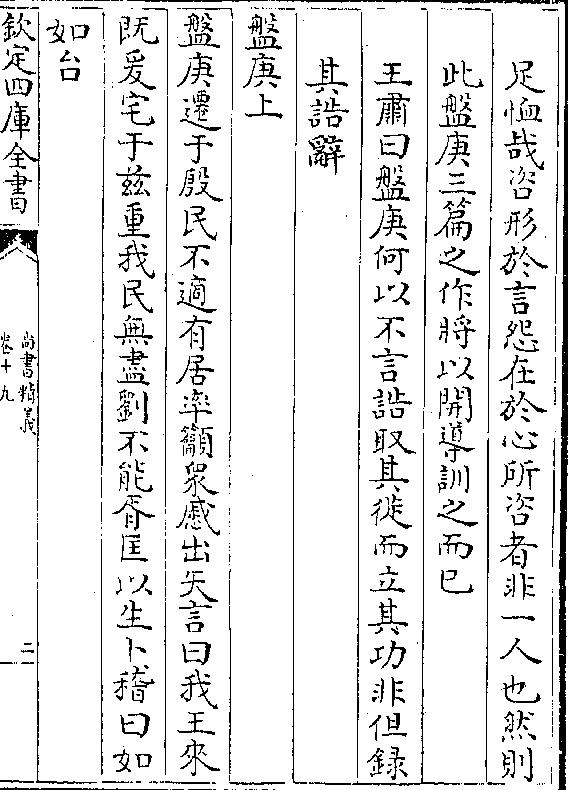 足恤哉咨形於言怨在於心所咨者非一人也然則
此盤庚三篇之作將以開導訓之而已
王肅曰盤庚何以不言誥取其徙而立其功非但録
其誥辭
盤庚上
盤庚遷于殷民不適有居率籲衆慼出矢言曰我王來
既爰宅于兹重我民無盡劉不能胥匡以生卜稽曰如
如台
欽定四庫全書
尚書精義
卷十九
二